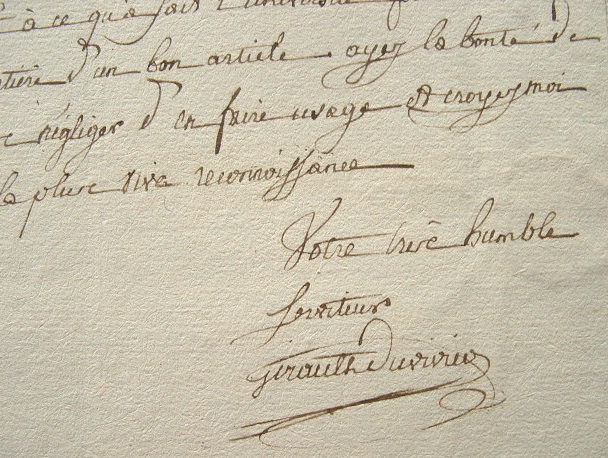 à ce qu'a fait l'universite
tière d'un bon article. ayez la bonté de
négliger d'en faire usage et croyez moi
la plus vive reconnoissance
Votre très humble
serviteur
girault Duvivier